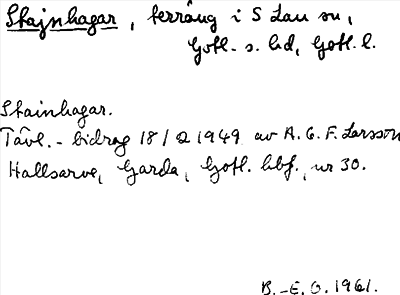 Stajnhagar, terräng i S Lau sn,
Gotl. s. hd, Gotl. l.
Stainhagar.
Tävl.-bidrag 18/2 1949 av A. G. F. Larsson
Hallsarve, Garda, Gotl. hbf., nr 30.
B.-E. O. 1961.